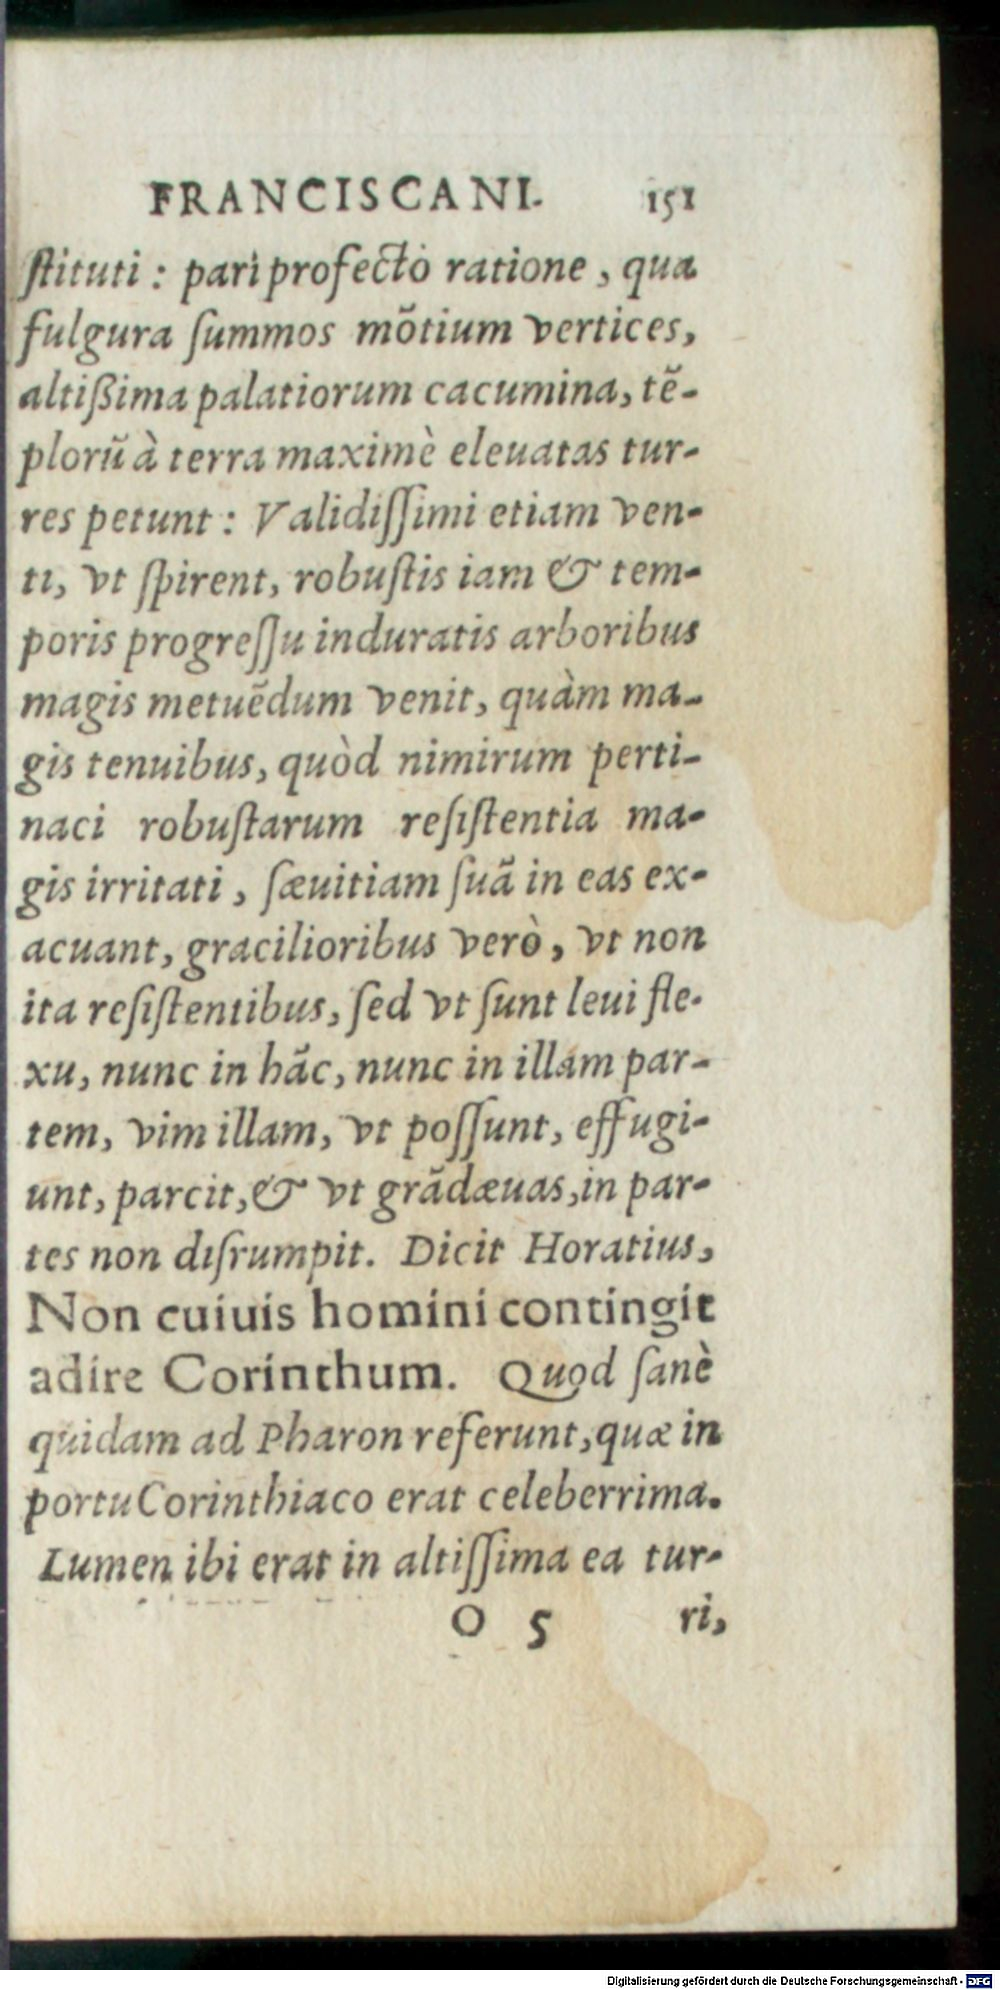 FRANCISCANI. 151
ſtituti : pari profectò ratione , qua
fulgura ſummos mõtium vertices,
altißima palatiorum cacumina, tẽ-
plorũ à terra maximè eleuatas tur-
res petunt : Validiſſimi etiam ven-
ti, vt ſpirent, robuſtis iam & tem-
poris progreſſu induratis arboribus
magis metuẽdum venit, quàm ma-
gis tenuibus, quòd nimirum perti-
naci robuſtarum reſiſtentia ma-
gis irritati , ſæuitiam ſuã in eas ex-
acuant, gracilioribus verò, vt non
ita reſiſtentibus, ſed vt ſunt leui fle-
xu, nunc in hãc, nunc in illam par-
tem, vim illam, vt poſſunt, effugi-
unt, parcit, & vt grãdæuas, in par-
tes non diſrumpit. Dicit Horatius,
Non cuiuis homini contingit
adire Corinthum. Quod ſanè
quidam ad Pharon referunt, quæ in
portu Corinthiaco erat celeberrima.
Lumen ibi erat in altiſſima ea tur-
O 5 ri,
Digitalisierung gefördert durch die Deutsche Forschungsgemeinschaft - DFG